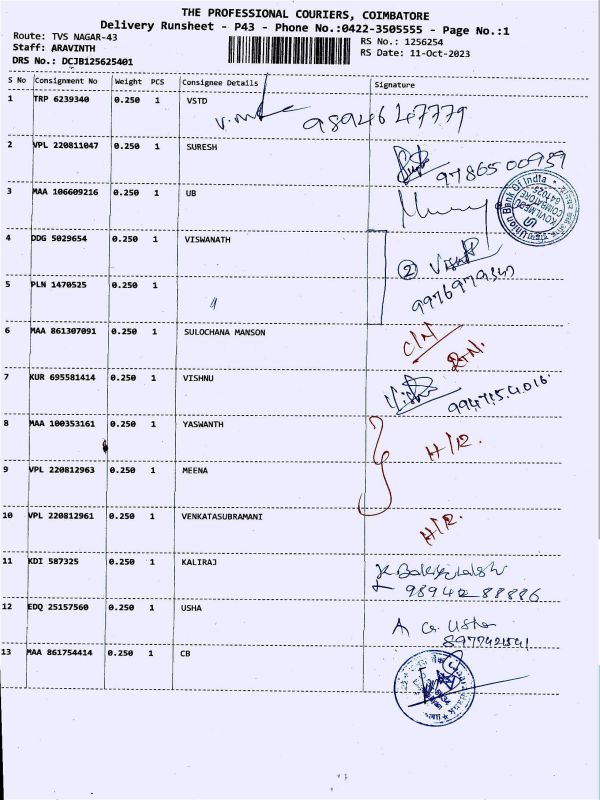 THE PROFESSIONAL COURIERS, COIMBATORE
Delivery Runsheet - P43 - Phone No.:0422-3505555 - Page No.:1
Route: TVS NAGAR-43
Staff: ARAVINTH
DRS No.: DCJB125625401
RS No.: 1256254
RS Date: 11-Oct-2023
S No Consignment No Weight PCS Consignee Details Signature
1 TRP 6239340 0.250 1 VSTD
9894647779
2 VPL 220811047 0.250 1 SURESH
9786500939
3 MAA 106609216 0.250 1 UB
Union Bank Of India
COIMBATORE
4 DDG 5029654 0.250 1 VISWANATH
2
5 PLN 1470525 0.250 1
6 MAA 861307091 0.250 1 SULOCHANA MANSON
C/N
7 KUR 695581414 0.250 1 VISHNU
8 MAA 100353161 0.250 1 YASWANTH
H/R.
9 VPL 220812963 0.250 1 MEENA
10 VPL 220812961 0.250 1 VENKATASUBRAMANI
H/R.
11 KDI 587325 0.250 1 KALIRAJ
12 EDQ 25157560 0.250 1 USHA
Usha
13 MAA 861754414 0.250 1 CB